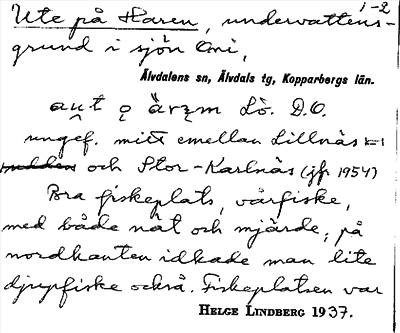 1-2
Ute på Haren, undervattens-
grund i sjön Ani,
Älvdalens sn, Älvdals tg, Kopparbergs län.
Lö. D.O.
ungef. mitt emellan Lillnäs
och Stor-Karlnäs (jfr 1954)
Bra fiskeplats, vårfiske,
med både nät och mjärde; på
nordkanten idkade man lite
djupfiske också. Fiskeplatsen var
HELGE LINDBERG 1937.